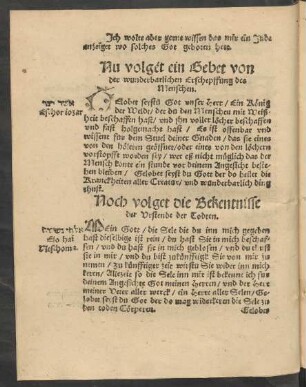 Ich wolte aber gerne wissen das mir ein Jude
anzeiget wo solches Got geboten hett.
Nu volget ein Gebet von
der wunderbarlichen Erschepffung des
Menschen.
Gelobet seystu Got unser Herr / Ein König
der Welde / der du den Menschen mit Weiß-
heit beschaffen hast / und jhn voller löcher beschaffen
und fast holgemacht hast / Es ist offenbar und
wissent für dem Stuel deiner Gnaden / das so eines
von den hölern geöffnet / oder eins von den löchern
verstopfft worden sey / wer es nicht möglich das der
Mensch konte ein stunde vor deinem Angesicht beste-
hen bleiben / Gelobet seystu Got der do heilet die
Kranckheiten aller Creatur / und wunderbarlich ding
thust.
Noch volget die Bekentnisse
der Urstende der Todten.
MEin Gott / die Sele die du inn mich gegeben
hast dieselbige ist rein / du hast Sie in mich beschaf-
fen / und du hast sie in mich geblosen / und du erhelst
sie in mir / und du bist zukünfftig Sie von mir zu
nemen / zu künfftiger zeit wirstu Sie wider inn mich
keren / Alle zeit so die Sele inn mir ist bekenne ich für
deinem Angesichte Got meines Herren / und der Herr
meiner Veter aller werck / ein Herre aller Selen / Ge-
lobet seyst du Got der do mag widerkeren die Sele zu
den toden Cörperen.
Gelobet